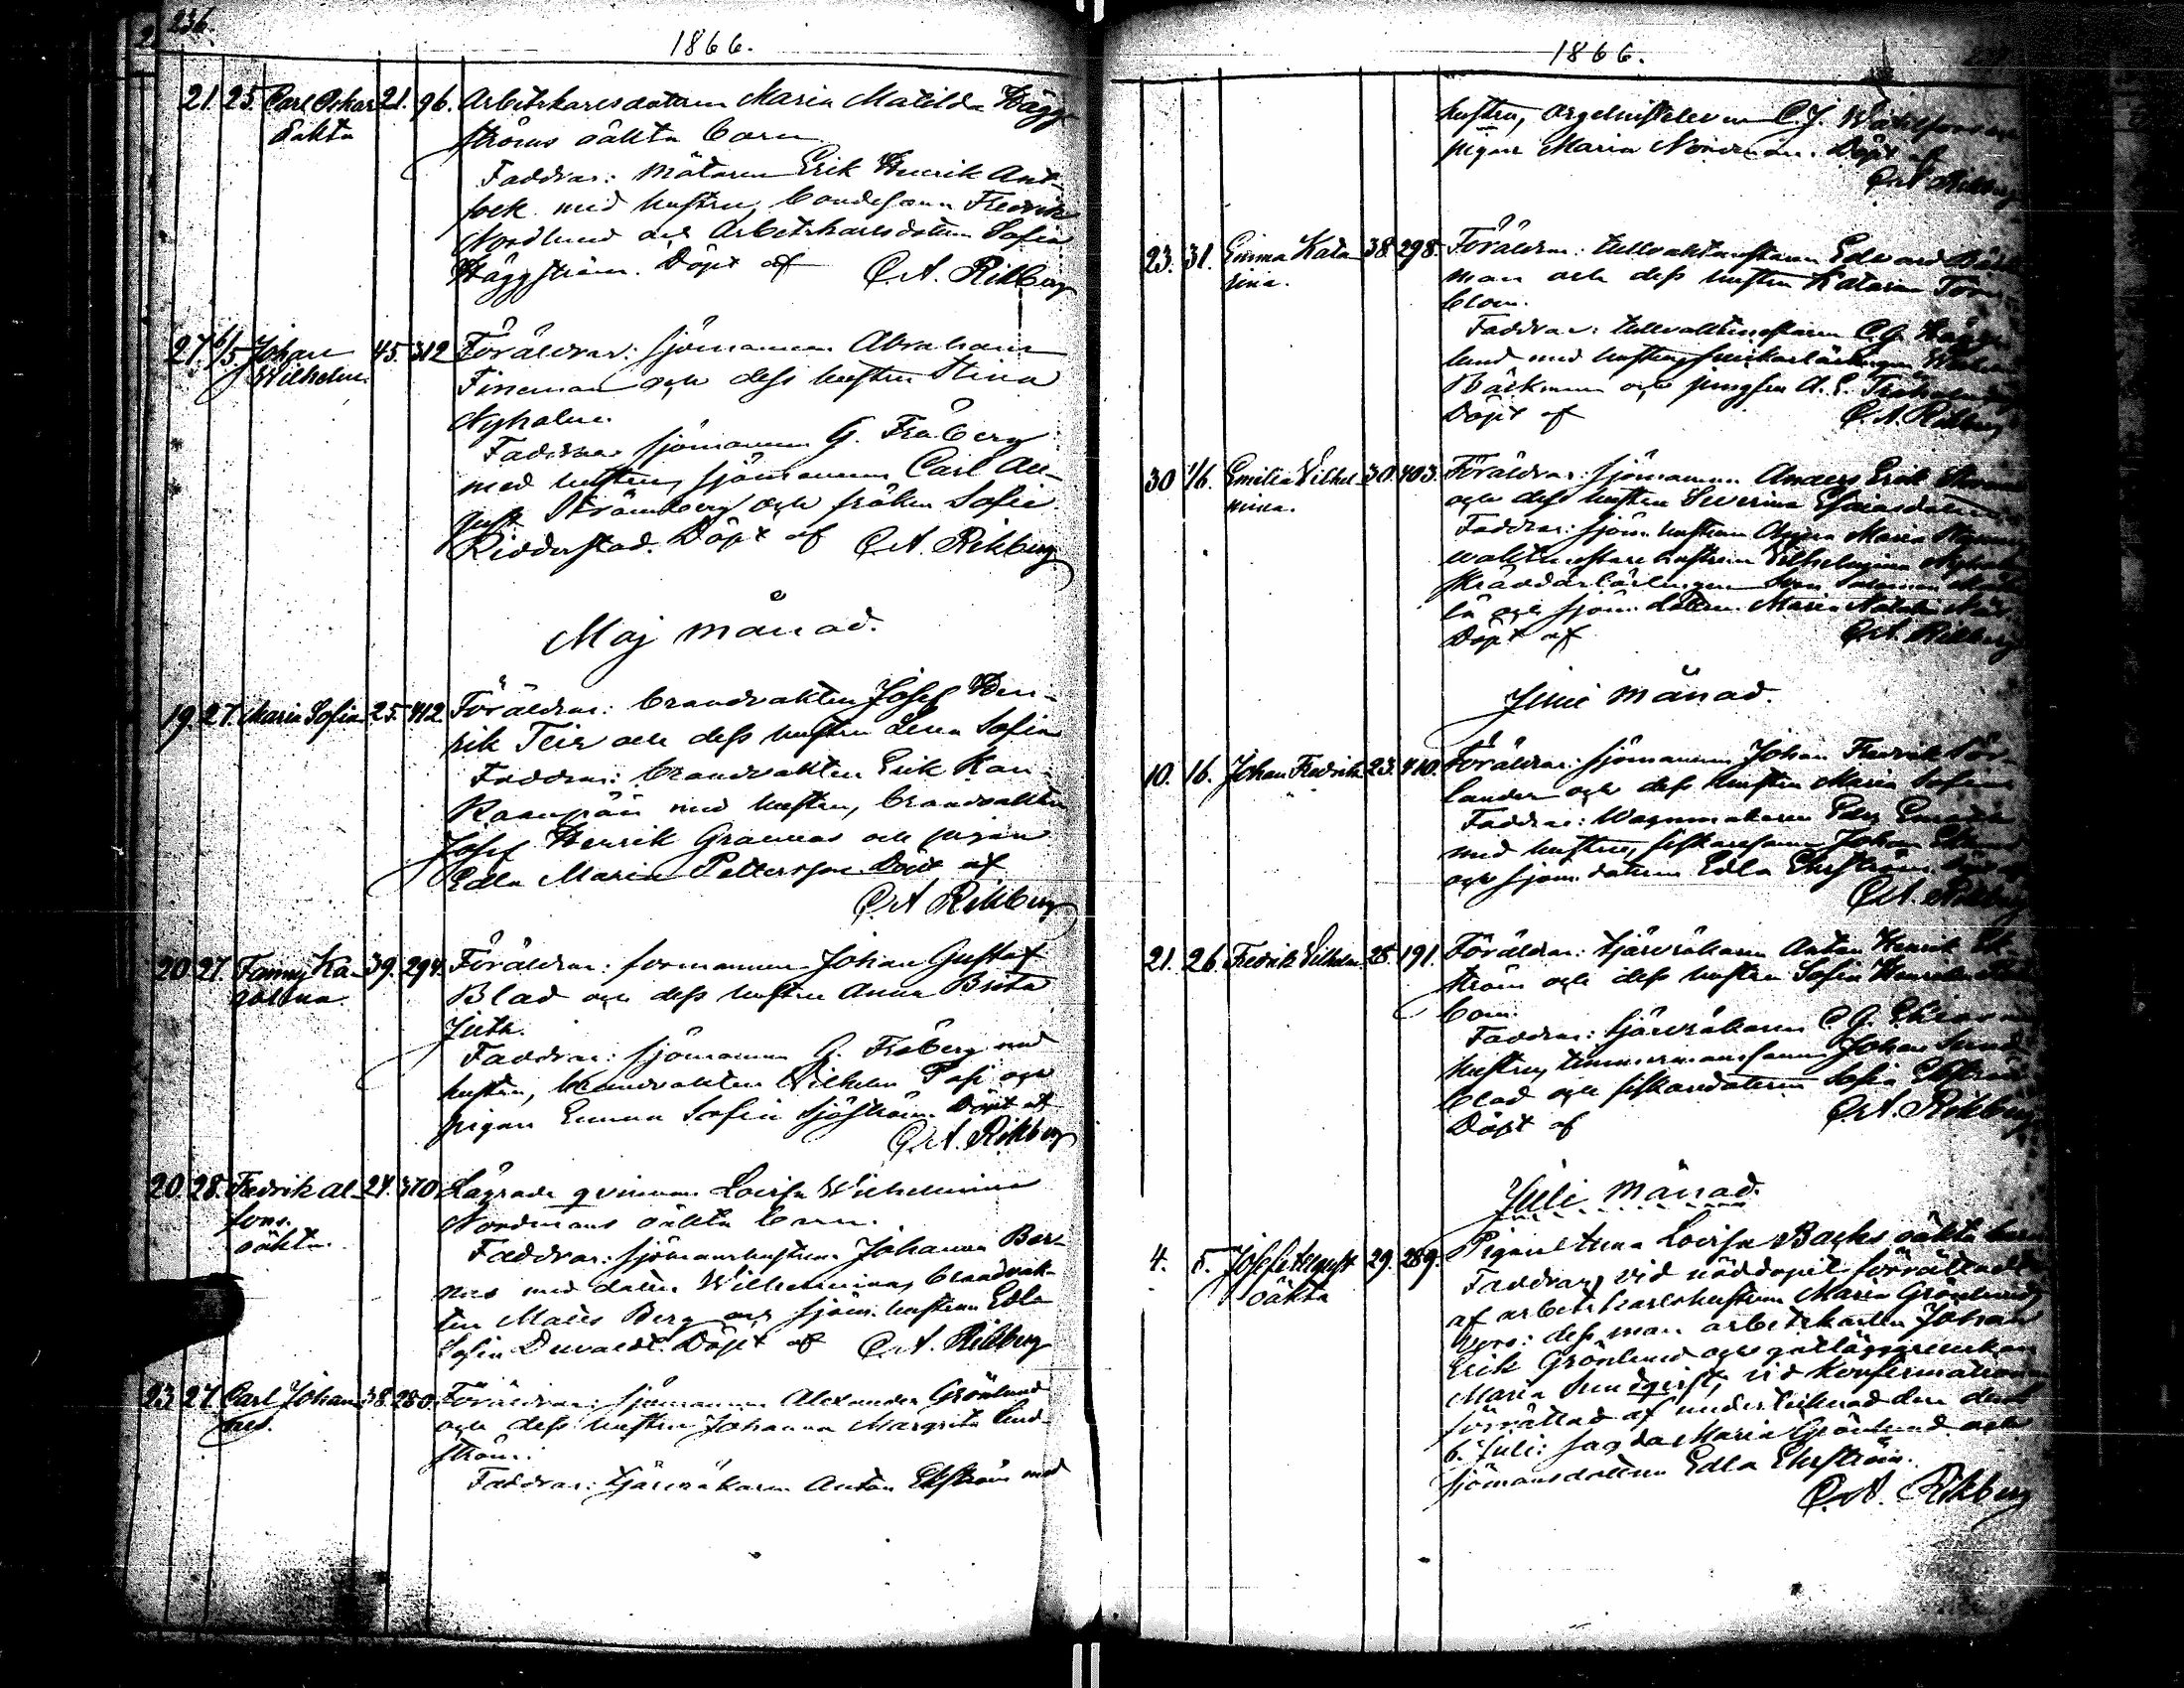 236.
1866.
21. 25. Carl Oskar 21. 96. Arbetskarlsdottren Maria Matilda Hägg-
Oäkta ströms oäkta barn
Faddrar: mätaren Erik Henrik Ant-
med hustru, bondesonen Fredrik
Nordlund och Arbetskarlsdottren Sofia
Häggström. Döpt af C.A. Rikberg
27. 6/5. Johan 45. 312 Föräldrar: sjömannen Abraham
Wilhelm. Fineman och dess hustru Stina
Nyholm.
Faddrar sjömannen G. Fråberg
med hustru, sjömannen Carl Au-
gust Strömberg och fröken Sofie
Ridderstad. Döpt af C.A. Rikberg
Maj månad.
19. 27. Maria Sofia 25. 412 Föräldrar: brandvakten Josef Hen-
rik Teir och dess hustru Lena Sofia
Faddrar: brandvakten Erik Kan-
med hustru, brandvakten
Josef Henrik Grannas och pigan
Edla Maria Pettersson. Döpt af
C.A. Rikberg
20. 27. Fanny Ka- 39. 294. Föräldrar: formannen Johan Gustaf
rolina Blad och dess hustru Anna Brita
Juth.
Faddrar: sjömannen G. Fråberg med
hustru, brandvakten Wilhelm Pass och
pigan Emma Sofia Sjöström. Döpt af
C.A. Rikberg
20. 28. Fredrik Al- 24. 370 Lägrade qvinnan Lovisa Wilhelmina
fons. Nordmans oäkta barn.
oäkta. Faddrar: sjömanshustrun Johanna
med dotter Wilhelmina, brandvak-
ten Matts Berg och sjöm. hustrun Edla
Sofia Duvaldt. Döpt af C.A. Rikberg
23 27. Carl Johan- 38. 280. Föräldrar: sjömannen Alexander Grönlund
nes. och dess hustru Johanna Margreta Lind-
ström.
Faddrar: tjärvräkaren Anton Ekström med
1866.
hustru, orgelnisteleven C.J.
pigan Maria Nordman. Döpt af
C.A. Rikberg
23. 31. Emma Kata- 38. 298. Föräldrar: tullvaktmästaren Edvard Bäck-
rina. man och dess hustru Katarina Törn-
blom.
Faddrar: tullvaktmästaren C.G.
lund med hustru, snickarlärlingen
Bäckman och jungfru A. E.
Döpt af C.A. Rikberg
30 1/6. Emilia Vilhel- 30. 403. Föräldrar: sjömannen Anders Erik
mina. och dess hustru Severina Esaiasdotter
Faddrar: sjöm. hustrun Maria
vaktmästare hustrun Vilhelmina
skräddarlärlingen
och sjöm. dottern Maria
Döpt af C.A. Rikberg
Junii månad.
10. 16. Johan Fredrik 23. 410. Föräldrar: sjömannen Johan Fredrik
lander och dess hustru Maria Sofia
Faddrar: Wagnmakaren
med hustru, fiskaresonen Johan
och sjöm. dottren Edla Ehrström. Döpt af
C.A. Rikberg
21. 26. Fredrik Vilhelm. 28. 191. Föräldrar: tjärvräkaren Anton Henrik Ek-
ström och dess hustru Sofia
bom.
Faddrar: tjärvräkaren C. G.
hustru, timmermanssonen Johan Sund-
blad och fiskaredottern Sofia
Döpt af C.A. Rikberg
Juli månad.
4. 5. Josef August 29. 289. Pigan Anna Lovisa Backs oäkta barn
oäkta Faddrar, vid nöddopet förrättadt
af arbetskarlshustrun Maria Grönlund,
voro: dess man arbetskarlen Johan
Erik Grönlund och
Maria Sundqvist; vid konfirmationen
förrättad af undertecknad den
6. Juli: sagda Maria Grönlund och
sjömansdottren Edla Ehrström.
C.A. Rikberg